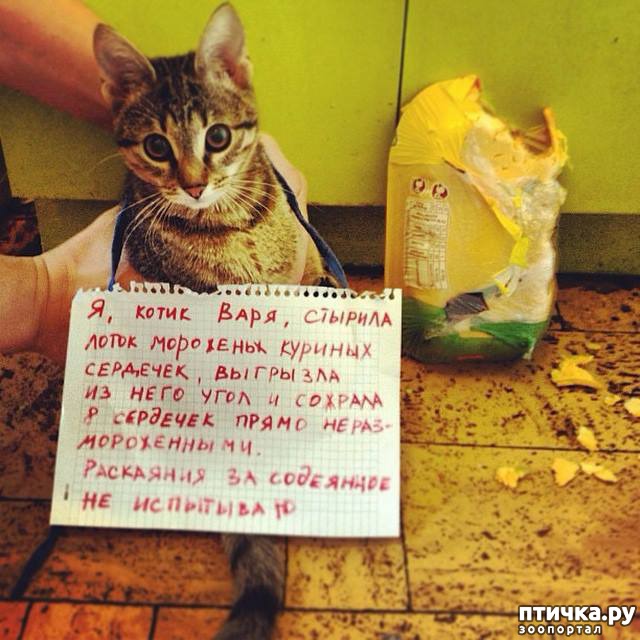 Я, котик Варя, стырила
лоток мороженых куриных
сердечек, выгрызла
из него угол и сохрала
8 сердечек прямо нераз-
мороженными.
Раскаяния за содеянное
не испытываю
птичка.ру
зоопортал